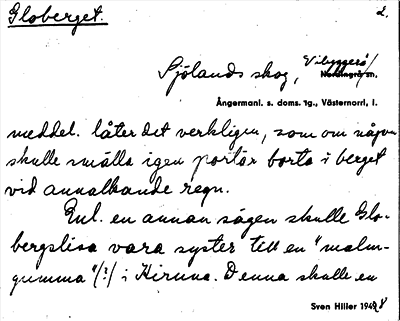 Globerget. 2.
Sjölands skog, Vibyggerå/
Nordingrå sn.
Ångermanl. s. doms. tg., Västernorrl. l.
meddel. låter det verkligen, som om någon
skulle smälla igen portar borta i berget
vid annalkande regn.
Enl. en annan sägen skulle Glo-
bergslisa vara syster till en "malm-
gumma" (!) i Kiruna. Denna skulle en
Sven Hiller 1948